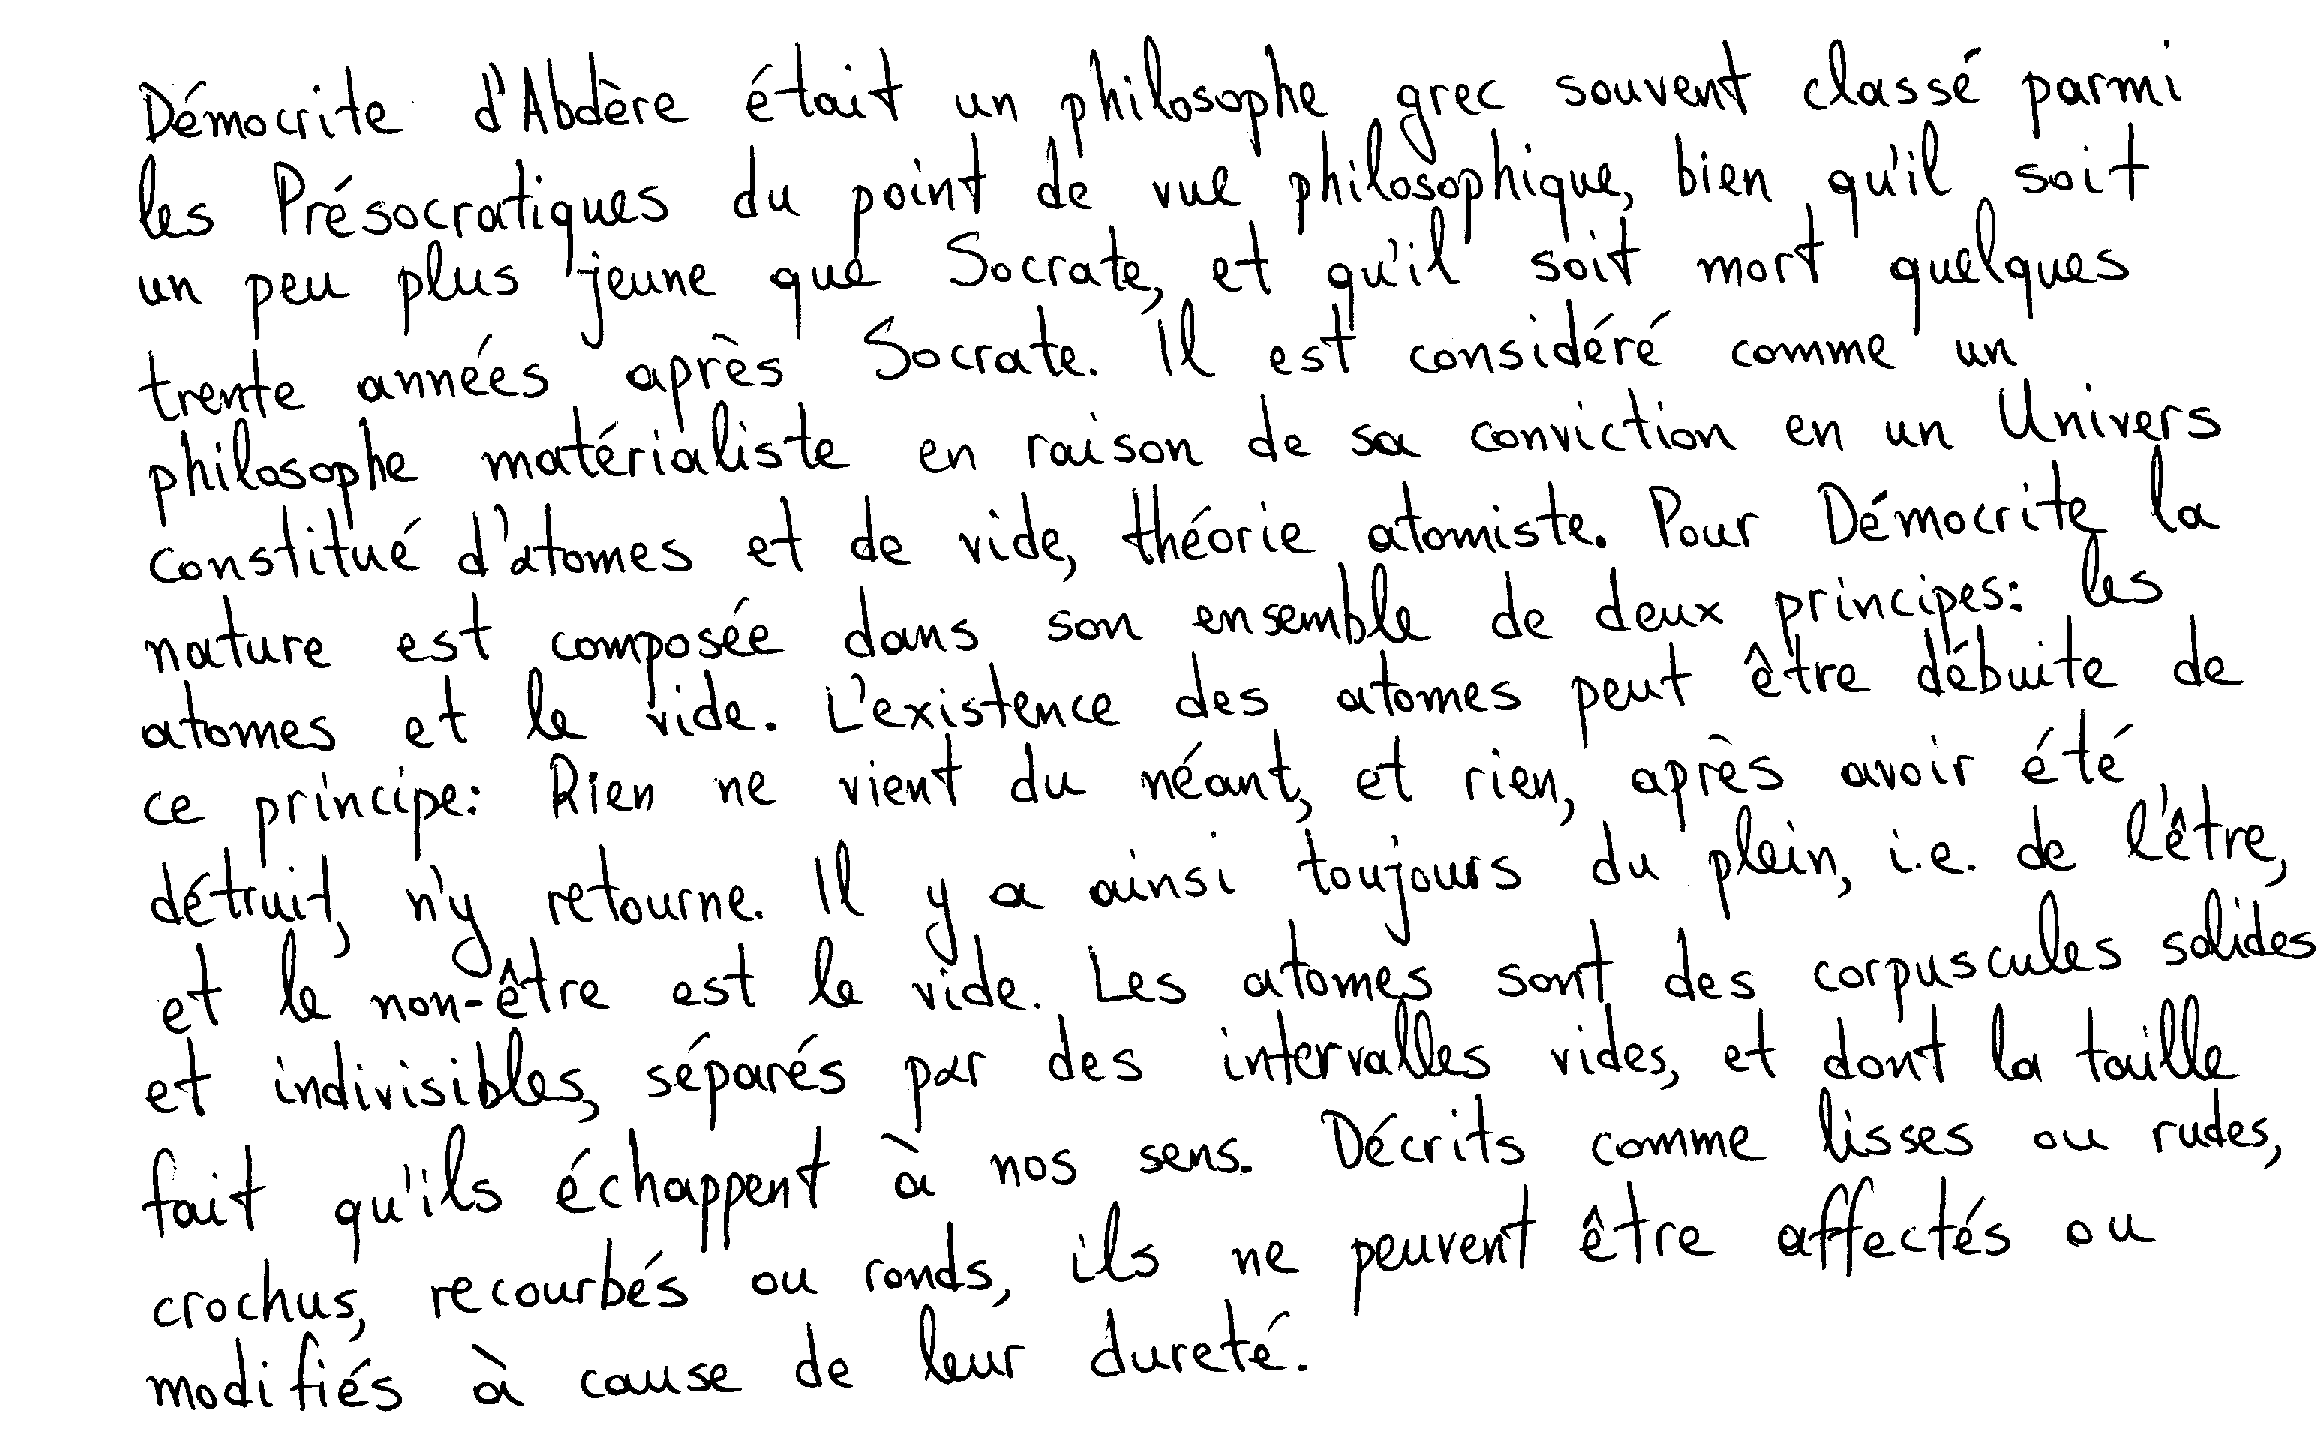 Démocrite d'Abdère était un philosophe grec souvent classé parmi
les Présocratiques du point de vue philosophique, bien qu'il soit
un peu plus jeune que Socrate, et qu'il soit mort quelques
trente années après Socrate. Il est considéré comme un
philosophe matérialiste en raison de sa conviction en un Univers
constitué d'atomes et de vide, théorie atomiste. Pour Démocrite la
nature est composée dans son ensemble de deux principes: les
atomes et le vide. L'existence des atomes peut être débuite de
ce principe: Rien ne vient du néant, et rien, après avoir été
détruit, n'y retourne. Il y a ainsi toujours du plein, i.e. de l'être,
et le non-être est le vide. Les atomes sont des corpuscules solides
et indivisibles, séparés par des intervalles vides, et dont la taille
fait qu'ils échappent à nos sens. Décrits comme lisses ou rudes,
crochus, recourbés ou ronds, ils ne peuvent être affectés ou
modifiés à cause de leur dureté.